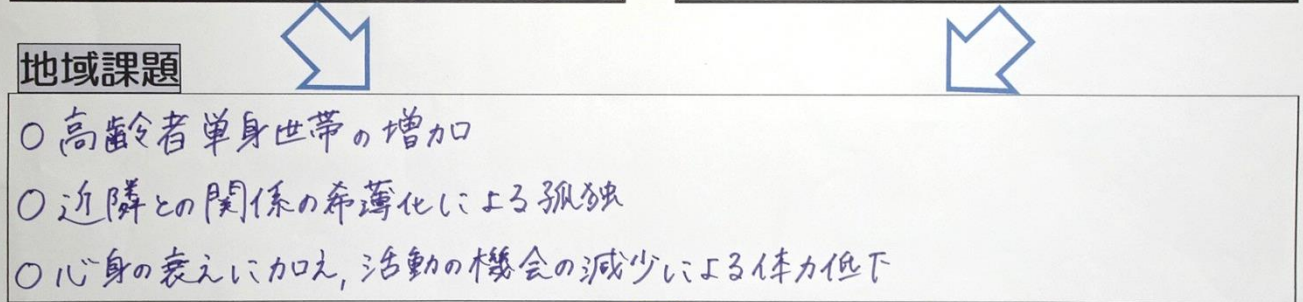 地域課題
○ 高齢者単身世帯の増加
○ 近隣との関係の希薄化による孤独
○ 心身の衰えに加え, 活動の機会の減少による体力低下